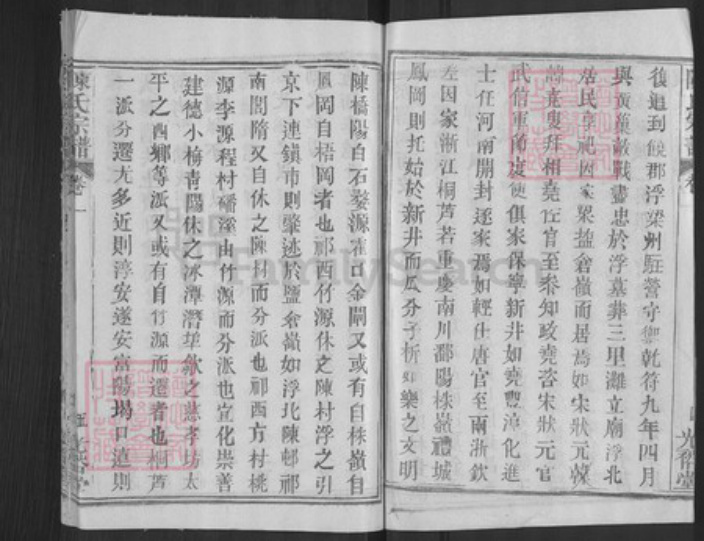 後追到饒郡浮梁州駐營守禦乾符九年四月
與黃巢敵戰盡忠於浮墓葬三里灘立廟浮北
居民享祀因家聚盐倉嶺而居焉如宋狀元
堯叟拜相堯佐官至叅知政堯咨宋狀元官
武信軍節度使俱家保寧新井如堯豐淳化進
士任河南開封遂家焉如輕仕唐官至兩浙欽
左因家浙江桐芦若重慶南川鄱陽株嶺禮城
鳳岡則托始於新井而瓜分子析如樂之文明
陳橋陽白石婺源霍口金閘又或有自株嶺自
鳳岡自梧岡者也祁西竹源休之陳村浮之引
京下連鎮市則肇述於鹽倉嶺如浮北陳邨祁
南閶隋又自休之陳村而分派也祁西方村桃
源李源程村磻溪由竹源而分派也宣化崇善
建德小梅青陽休之冰潭潛埠歙之慈孝坊太
平之西鄉等派又或有自竹源而遷者也桐芦
一派分遷尤多近則淳安遂安富陽場口遠則
陳氏宗譜 卷一
陳氏宗譜 卷
光裕堂
FamilySearch